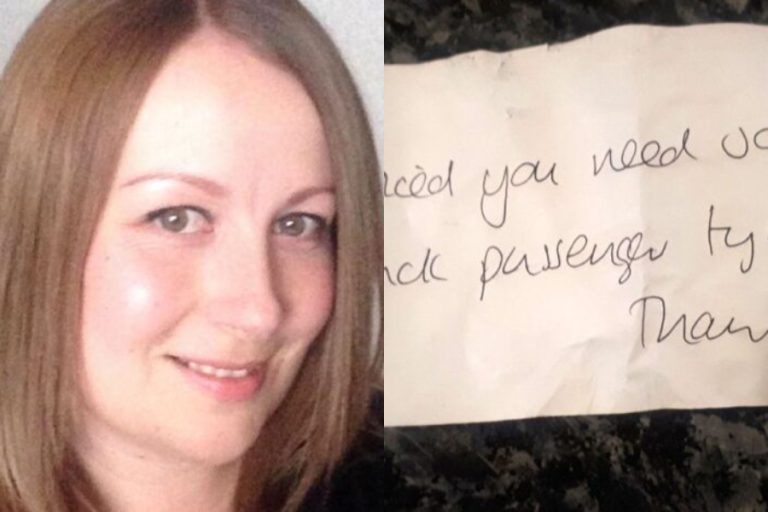 iced you need yo
ack passenger ty
Than